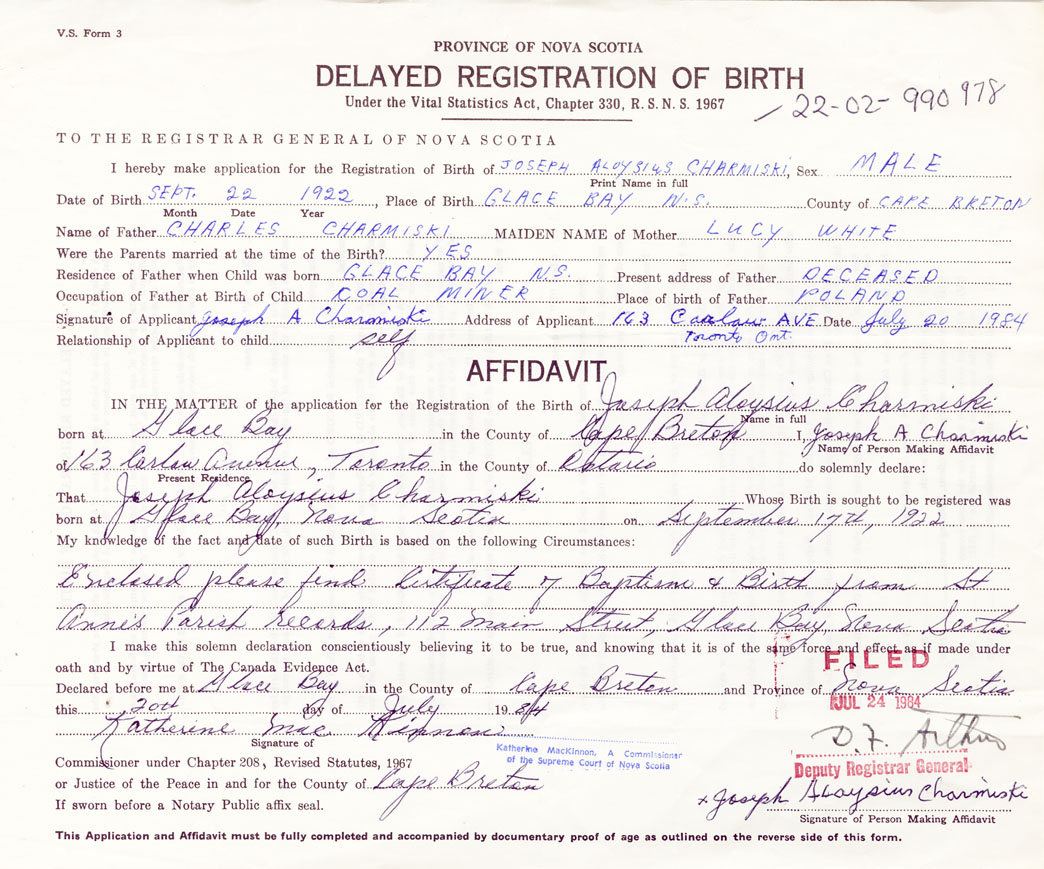 V.S. Form 3
PROVINCE OF NOVA SCOTIA
DELAYED REGISTRATION OF BIRTH
Under the Vital Statistics Act, Chapter 330, R. S. N. S. 1967
22-02-990978
TO THE REGISTRAR GENERAL OF NOVA SCOTIA
I hereby make application for the Registration of Birth of JOSEPH ALOYSIUS CHARMISKI, Sex MALE
Print Name in full
Date of Birth SEPT. 22 1922, Place of Birth GLACE BAY N.S. County of CAPE BRETON
Month Date Year
Name of Father CHARLES CHARMISKI MAIDEN NAME of Mother LUCY WHITE
Were the Parents married at the time of the Birth? YES
Residence of Father when Child was born GLACE BAY N.S. Present address of Father DECEASED
Occupation of Father at Birth of Child COAL MINER Place of birth of Father POLAND
Signature of Applicant Joseph A Charmiski Address of Applicant 163 Carlaw AVE Date July 20 1984
Relationship of Applicant to child self Toronto Ont.
AFFIDAVIT
IN THE MATTER of the application for the Registration of the Birth of Joseph Aloysius Charmiski
Name in full
born at Glace Bay in the County of Cape Breton I, Joseph A Charmiski
Name of Person Making Affidavit
of 163 Carlaw Avenue, Toronto in the County of Ontario do solemnly declare:
Present Residence
That Joseph Aloysius Charmiski Whose Birth is sought to be registered was
born at Glace Bay, Nova Scotia on September 17th, 1922
My knowledge of the fact and date of such Birth is based on the following Circumstances:
Enclosed please find Certificate of Baptism & Birth from St
Anne's Parish records, 112 Main Street, Glace Bay, Nova Scotia
I make this solemn declaration conscientiously believing it to be true, and knowing that it is of the same force and effect as if made under
oath and by virtue of The Canada Evidence Act.
FILED
Declared before me at Glace Bay in the County of Cape Breton and Province of Nova Scotia
this 20th day of July 1984
JUL 24 1984
Katherine MacKinnon
Signature of
Katherine MacKinnon, A Commissioner
of the Supreme Court of Nova Scotia
D.F. Arthur
Commissioner under Chapter 208, Revised Statutes, 1967
Deputy Registrar General
or Justice of the Peace in and for the County of Cape Breton
x Joseph Aloysius Charmiski
If sworn before a Notary Public affix seal.
Signature of Person Making Affidavit
This Application and Affidavit must be fully completed and accompanied by documentary proof of age as outlined on the reverse side of this form.